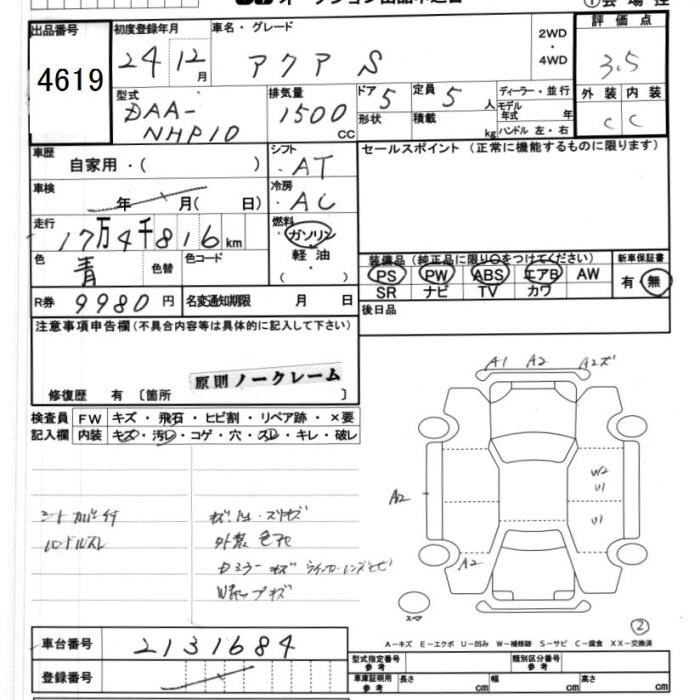 出品番号 初度登録年月 車名・グレード 2WD・4WD 評価点
4619 24 12月 アクア S 3.5
型式 DAA-NHP10 排気量 1500 CC ドア 5 定員 5 人 ディーラー・並行
形状 積載 kg モデル年式 年 ハンドル 左・右
外装 内装
C C
車歴 自家用・( ) シフト AT セールスポイント (正常に機能するものに限ります)
車検 年 月( 日) 冷房 AC
走行 17万4千816km 燃料 ガソリン 軽油 ( )
色 青 色替 色コード
装備品 (純正品に限り○をつけてください) 新車保証書
PS PW ABS エアB AW 有 無
SR ナビ TV カワ
R券 9980円 名変通知期限 月 日 後日品
注意事項申告欄(不具合内容等は具体的に記入して下さい)
原則ノークレーム
修復歴 有 〔箇所 〕
検査員 FW キズ・飛石・ヒビ割・リペア跡・×要
記入欄 内装 キズ・汚レ・コゲ・穴・スレ・キレ・破レ
A1 A2 A2ズ
W2
U1
A2 U1
A2
ハンドルスレ 外装色アセ
スペア
②
A-キズ E-エクボ U-凹み W-補修跡 S-サビ C-腐食 XX-交換済
車台番号 2131684
登録番号
型式指定番号 参考 類別区分番号 参考
車庫証明用 参考 長さ cm 幅 cm 高さ cm